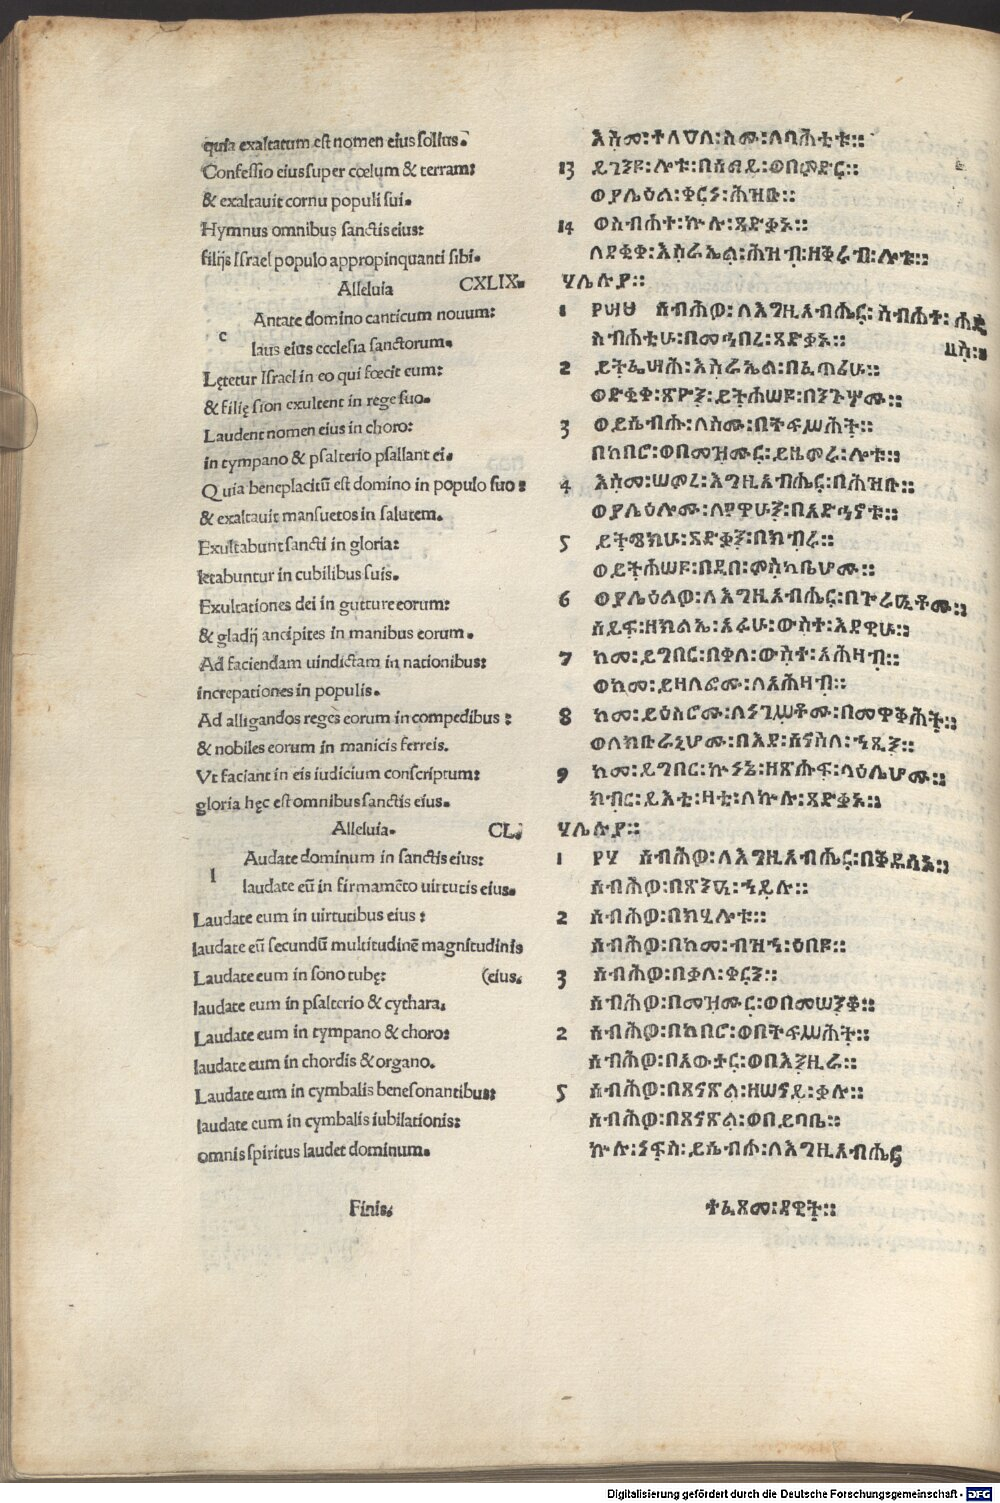 quia exaltatum est nomen eius solius.
Confessio eius super cœlum & terram:
& exaltauit cornu populi sui.
Hymnus omnibus sanctis eius:
filijs Israel populo appropinquanti sibi.
Alleluia CXLIX.
c Antate domino canticum nouum:
laus eius ecclesia sanctorum.
Lętetur Israel in eo qui fœcit eum:
& filię sion exultent in rege suo.
Laudent nomen eius in choro:
in tympano & psalterio psallant ei.
Quia beneplacitū est domino in populo suo:
& exaltauit mansuetos in salutem.
Exultabunt sancti in gloria:
lętabuntur in cubilibus suis.
Exultationes dei in gutture eorum:
& gladij ancipites in manibus eorum.
Ad faciendam uindictam in nationibus:
increpationes in populis.
Ad alligandos reges eorum in compedibus:
& nobiles eorum in manicis ferreis.
Vt faciant in eis iudicium conscriptum:
gloria hęc est omnibus sanctis eius.
Alleluia. CL.
l Audate dominum in sanctis eius:
laudate eū in firmamēto uirtutis eius.
Laudate eum in uirtutibus eius:
laudate eū secundū multitudinē magnitudinis
Laudate eum in sono tubę: (eius.
laudate eum in psalterio & cythara.
Laudate eum in tympano & choro:
laudate eum in chordis & organo.
Laudate eum in cymbalis benesonantibus:
laudate eum in cymbalis iubilationis:
omnis spiritus laudet dominum.
Finis.
እስመ፡ተለዐለ፡ስሙ፡ለባሕቲቱ።
13 ይገንዩ፡ሎቱ፡በሰማይ፡ወበምድር።
ወያሌዕል፡ቀርነ፡ሕዝቡ።
14 ወስብሐተ፡ኵሉ፡ጻድቃኑ።
ለደቂቀ፡እስራኤል፡ሕዝብ፡ዘቅሩብ፡ሎቱ።
ሃሌሉያ።
1 ፻፵፱ ሰብሕዎ፡ለእግዚአብሔር፡ስብሐተ፡ሐዲ
ስብሐቲሁ፡በማኅበረ፡ጻድቃኑ። ስ፡
2 ይትፌሣሕ፡እስራኤል፡በፈጣሪሁ።
ወደቂቀ፡ጽዮን፡ይትሐሠዩ፡በንጉሦሙ።
3 ወይሴብሑ፡ለስሙ፡በትፍሥሕት።
በከበሮ፡ወበመዝሙር፡ይዜምሩ፡ሎቱ።
4 እስመ፡ሠምረ፡እግዚአብሔር፡በሕዝቡ።
ወያሌዕሎሙ፡ለየዋሃን፡በአድኅኖቱ።
5 ይትሜክሑ፡ጻድቃን፡በክብር።
ወይትሐሠዩ፡በዲበ፡ምስካቤሆሙ።
6 ወያሌዕልዎ፡ለእግዚአብሔር፡በጕርዔሆሙ።
ሰይፍ፡ዘክልኤ፡አፉሁ፡ውስተ፡እደዊሁ።
7 ከመ፡ይግበር፡በቀለ፡ውስተ፡አሕዛብ።
ወከመ፡ይዛለፎሙ፡ለአሕዛብ።
8 ከመ፡ይዕስሮሙ፡ለነገሥቶሙ፡በመዋቅሕት።
ወለክቡራኒሆሙ፡በእደ፡ሰናስለ፡ኀጺን።
9 ከመ፡ይግበር፡ኵነኔ፡ዘጽሑፍ፡ላዕሌሆሙ።
ክብር፡ይእቲ፡ዛቲ፡ለኵሉ፡ጻድቃኑ።
ሃሌሉያ።
1 ፻፶ ሰብሕዎ፡ለእግዚአብሔር፡በቅዱሳኑ።
ሰብሕዎ፡በጽንዐ፡ኀይሉ።
2 ሰብሕዎ፡በክሂሎቱ።
ሰብሕዎ፡በከመ፡ብዝኀ፡ዕበዩ።
3 ሰብሕዎ፡በቃለ፡ቀርን።
ሰብሕዎ፡በመዝሙር፡ወበመሰንቆ።
2 ሰብሕዎ፡በከበሮ፡ወበትፍሥሕት።
ሰብሕዎ፡በአውታር፡ወበእንዚራ።
5 ሰብሕዎ፡በጸናጽል፡ዘሠናይ፡ቃሉ።
ሰብሕዎ፡በጸናጽል፡ወበይባቤ።
ኵሉ፡ነፍስ፡ይሴብሖ፡ለእግዚአብሔር
ተፈጸመ፡ዳዊት።